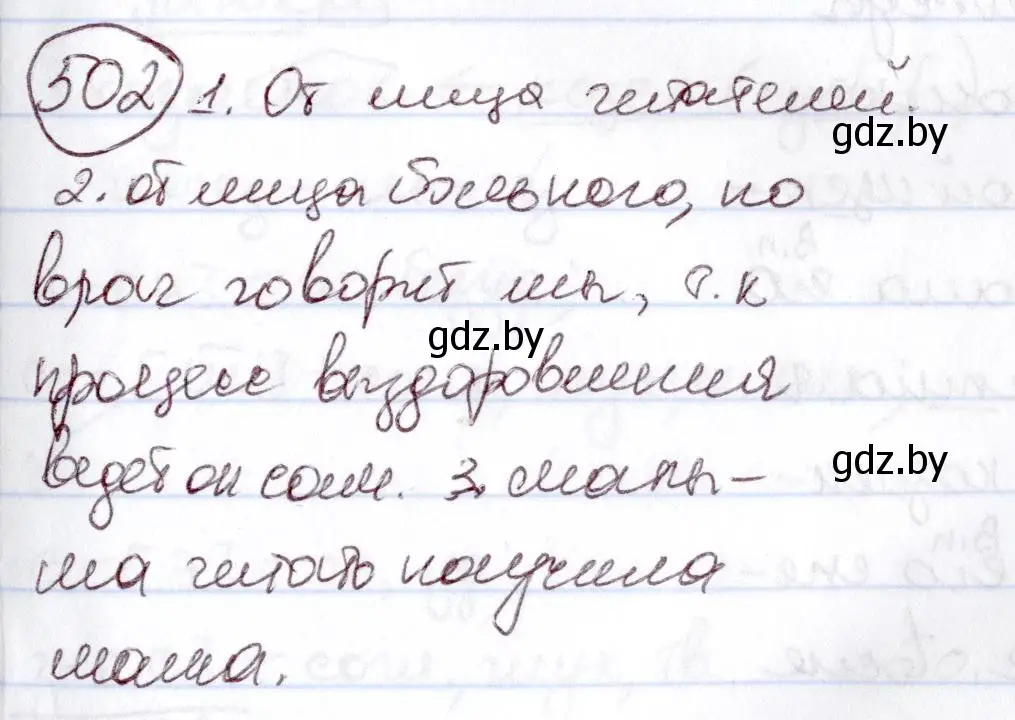 502 1. От лица читателей.
gdz.by
2. от лица больного, но
врач говорит мы, т.к
gdz.by
процесс выздоровления
ведет он сам. 3. мамы-
gdz.by
ма читать научила
мама.